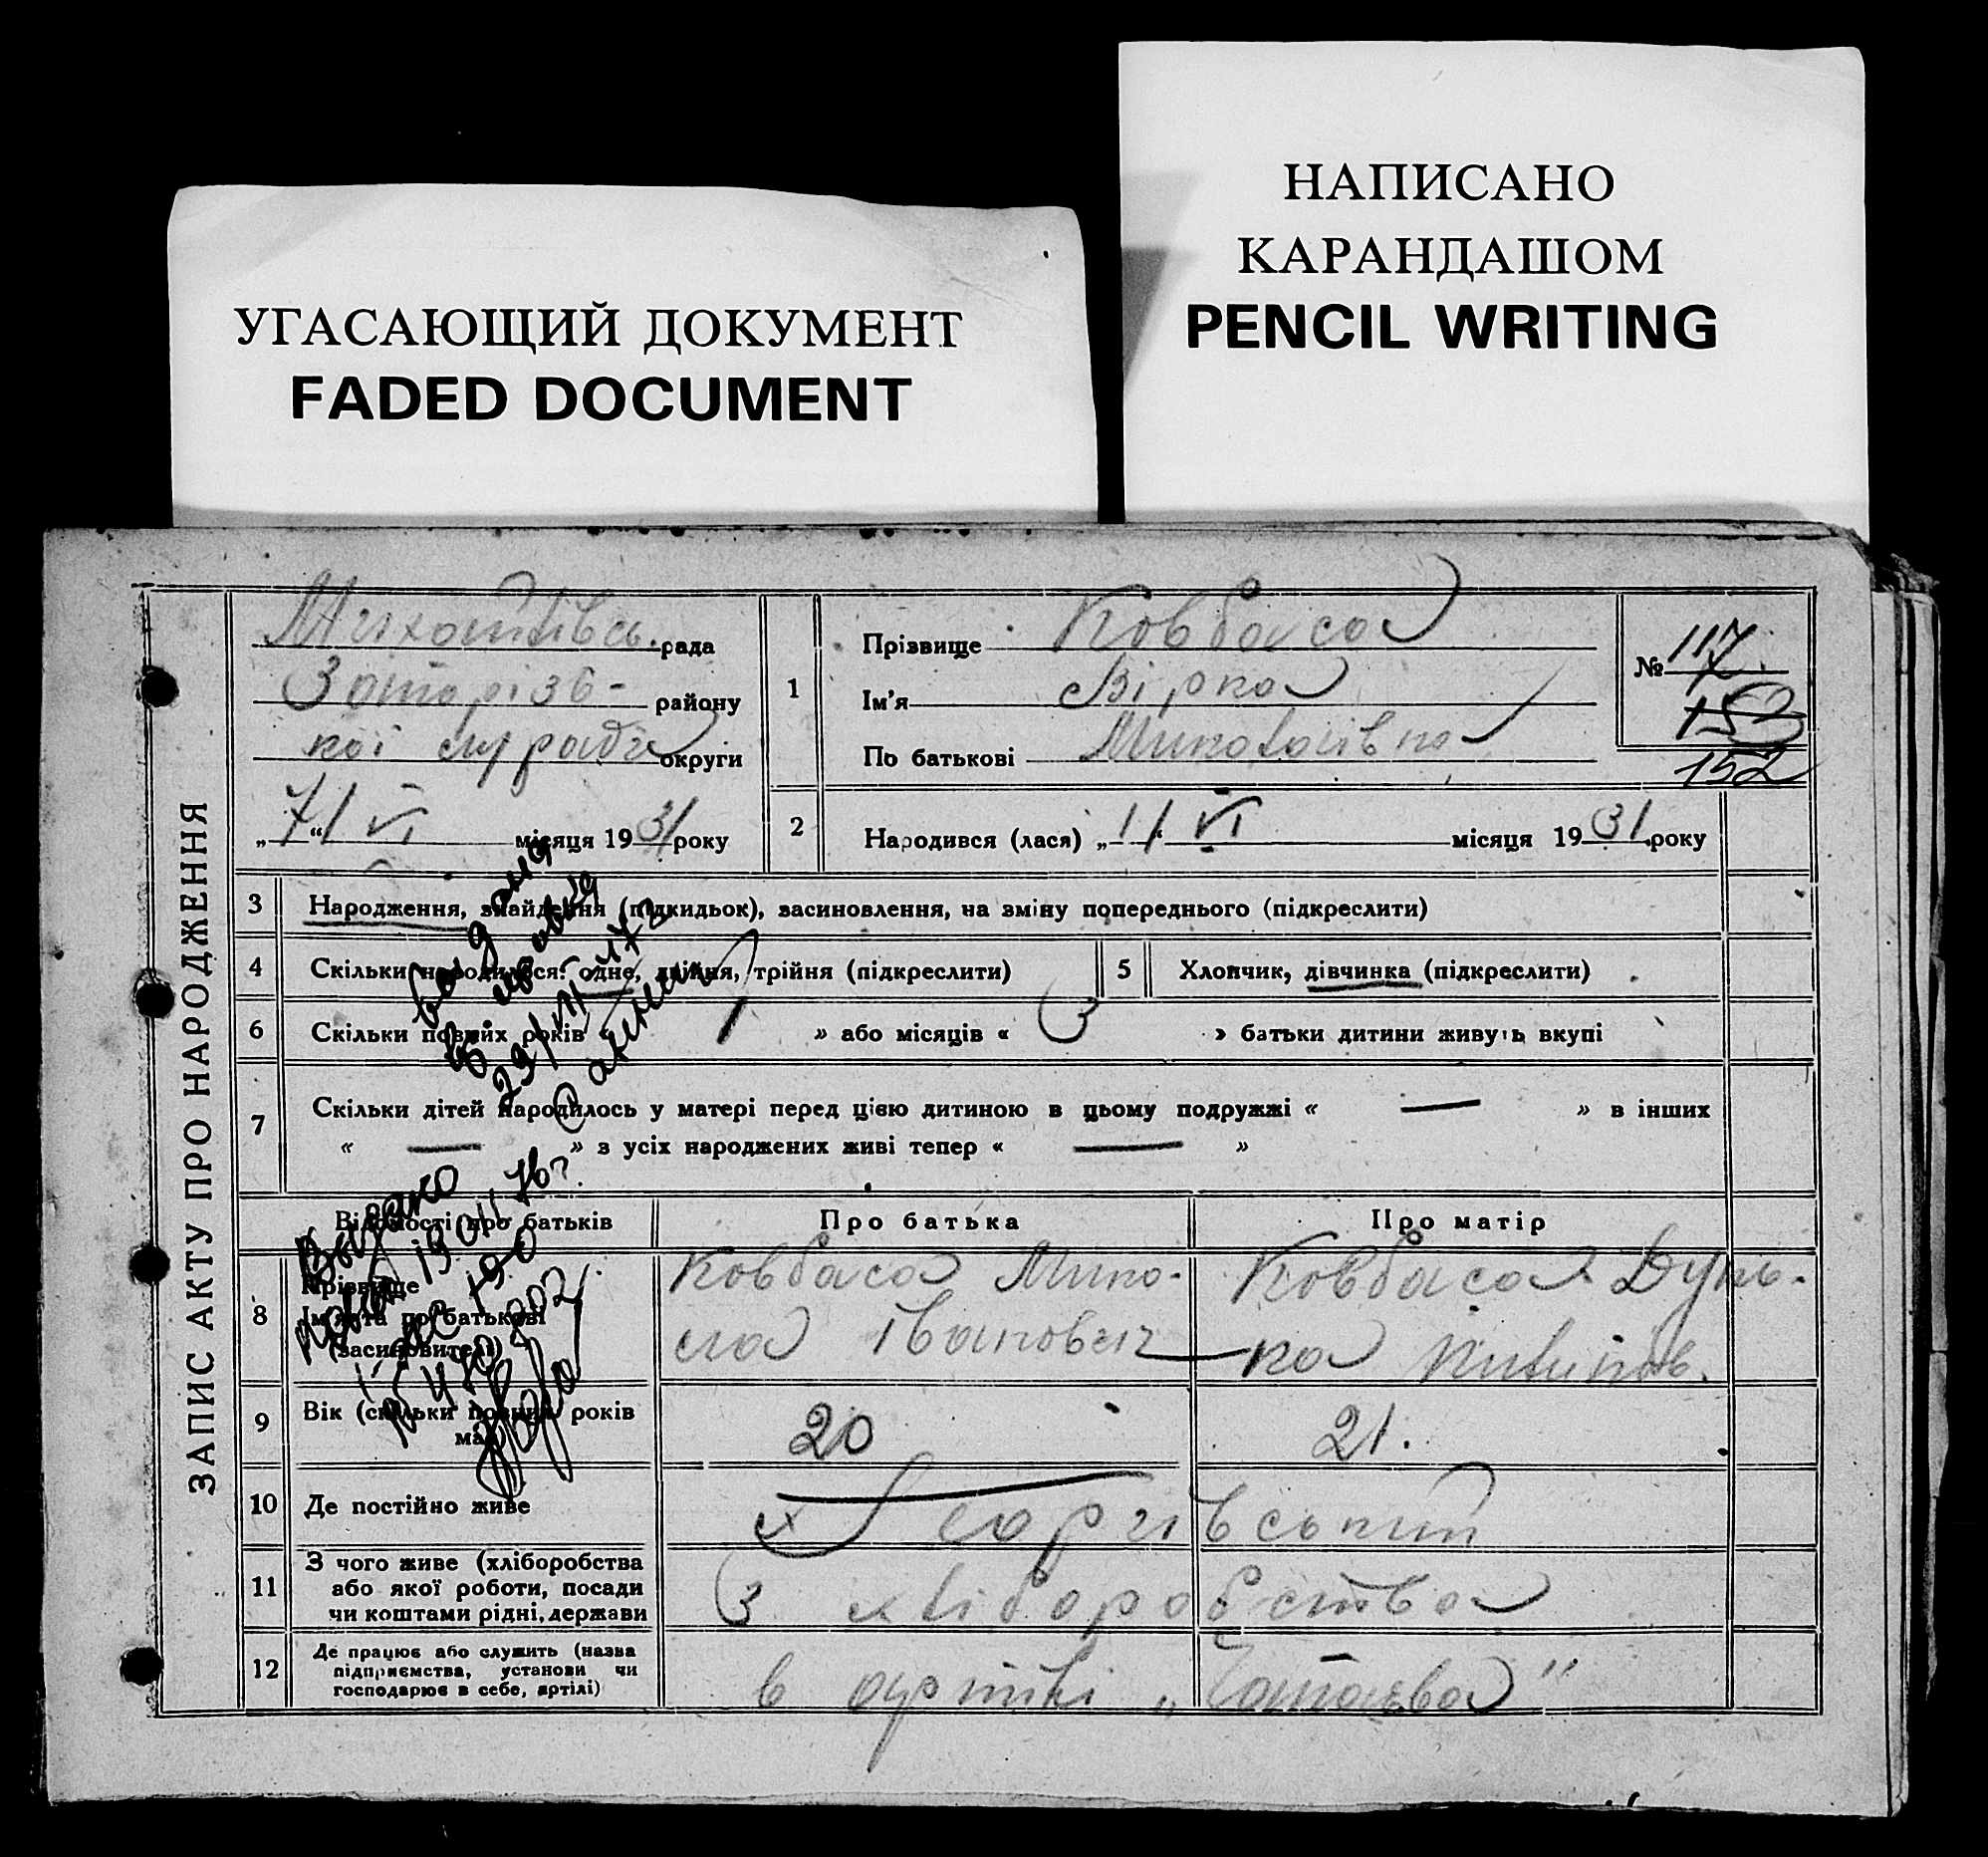 НАПИСАНО
КАРАНДАШОМ
PENCIL WRITING
УГАСАЮЩИЙ ДОКУМЕНТ
FADED DOCUMENT
ЗАПИС АКТУ ПРО НАРОДЖЕННЯ
Михайлівсь. рада
району
округи
„7“ / VI місяця 1931 року
1
Прізвище Ковбаса
Ім'я Вірка
По батькові Миколаївна
№ 117
153
152
2
Народився (лася) „1“ / VI місяця 1931 року
3 Народження, знайдення (підкидьок), засиновлення, на зміну попереднього (підкреслити)
4 Скільки народилося: одне, двійня, трійня (підкреслити)
5 Хлопчик, дівчинка (підкреслити)
6 Скільки повних років « 1 » або місяців « 3 » батьки дитини живуть вкупі
7 Скільки дітей народилось у матері перед цією дитиною в цьому подружжі « — » в інших
« — » з усіх народжених живі тепер « — »
Відомості про батьків Про батька Про матір
8 Прізвище
Ім'я та по батькові
(засиновителі)
Ковбаса Мико-
ла Іванович
Ковбаса Дунь-
ка
9 Вік (скільки повних років
має) 20 21.
10 Де постійно живе х Георгівський
11 З чого живе (хліборобства
або якої роботи, посади
чи коштами рідні, держави
З хліборобства
12 Де працює або служить (назва
підприємства, установи чи
господарює в себе, артілі)
в артілі „Чапаєва"
Выдано